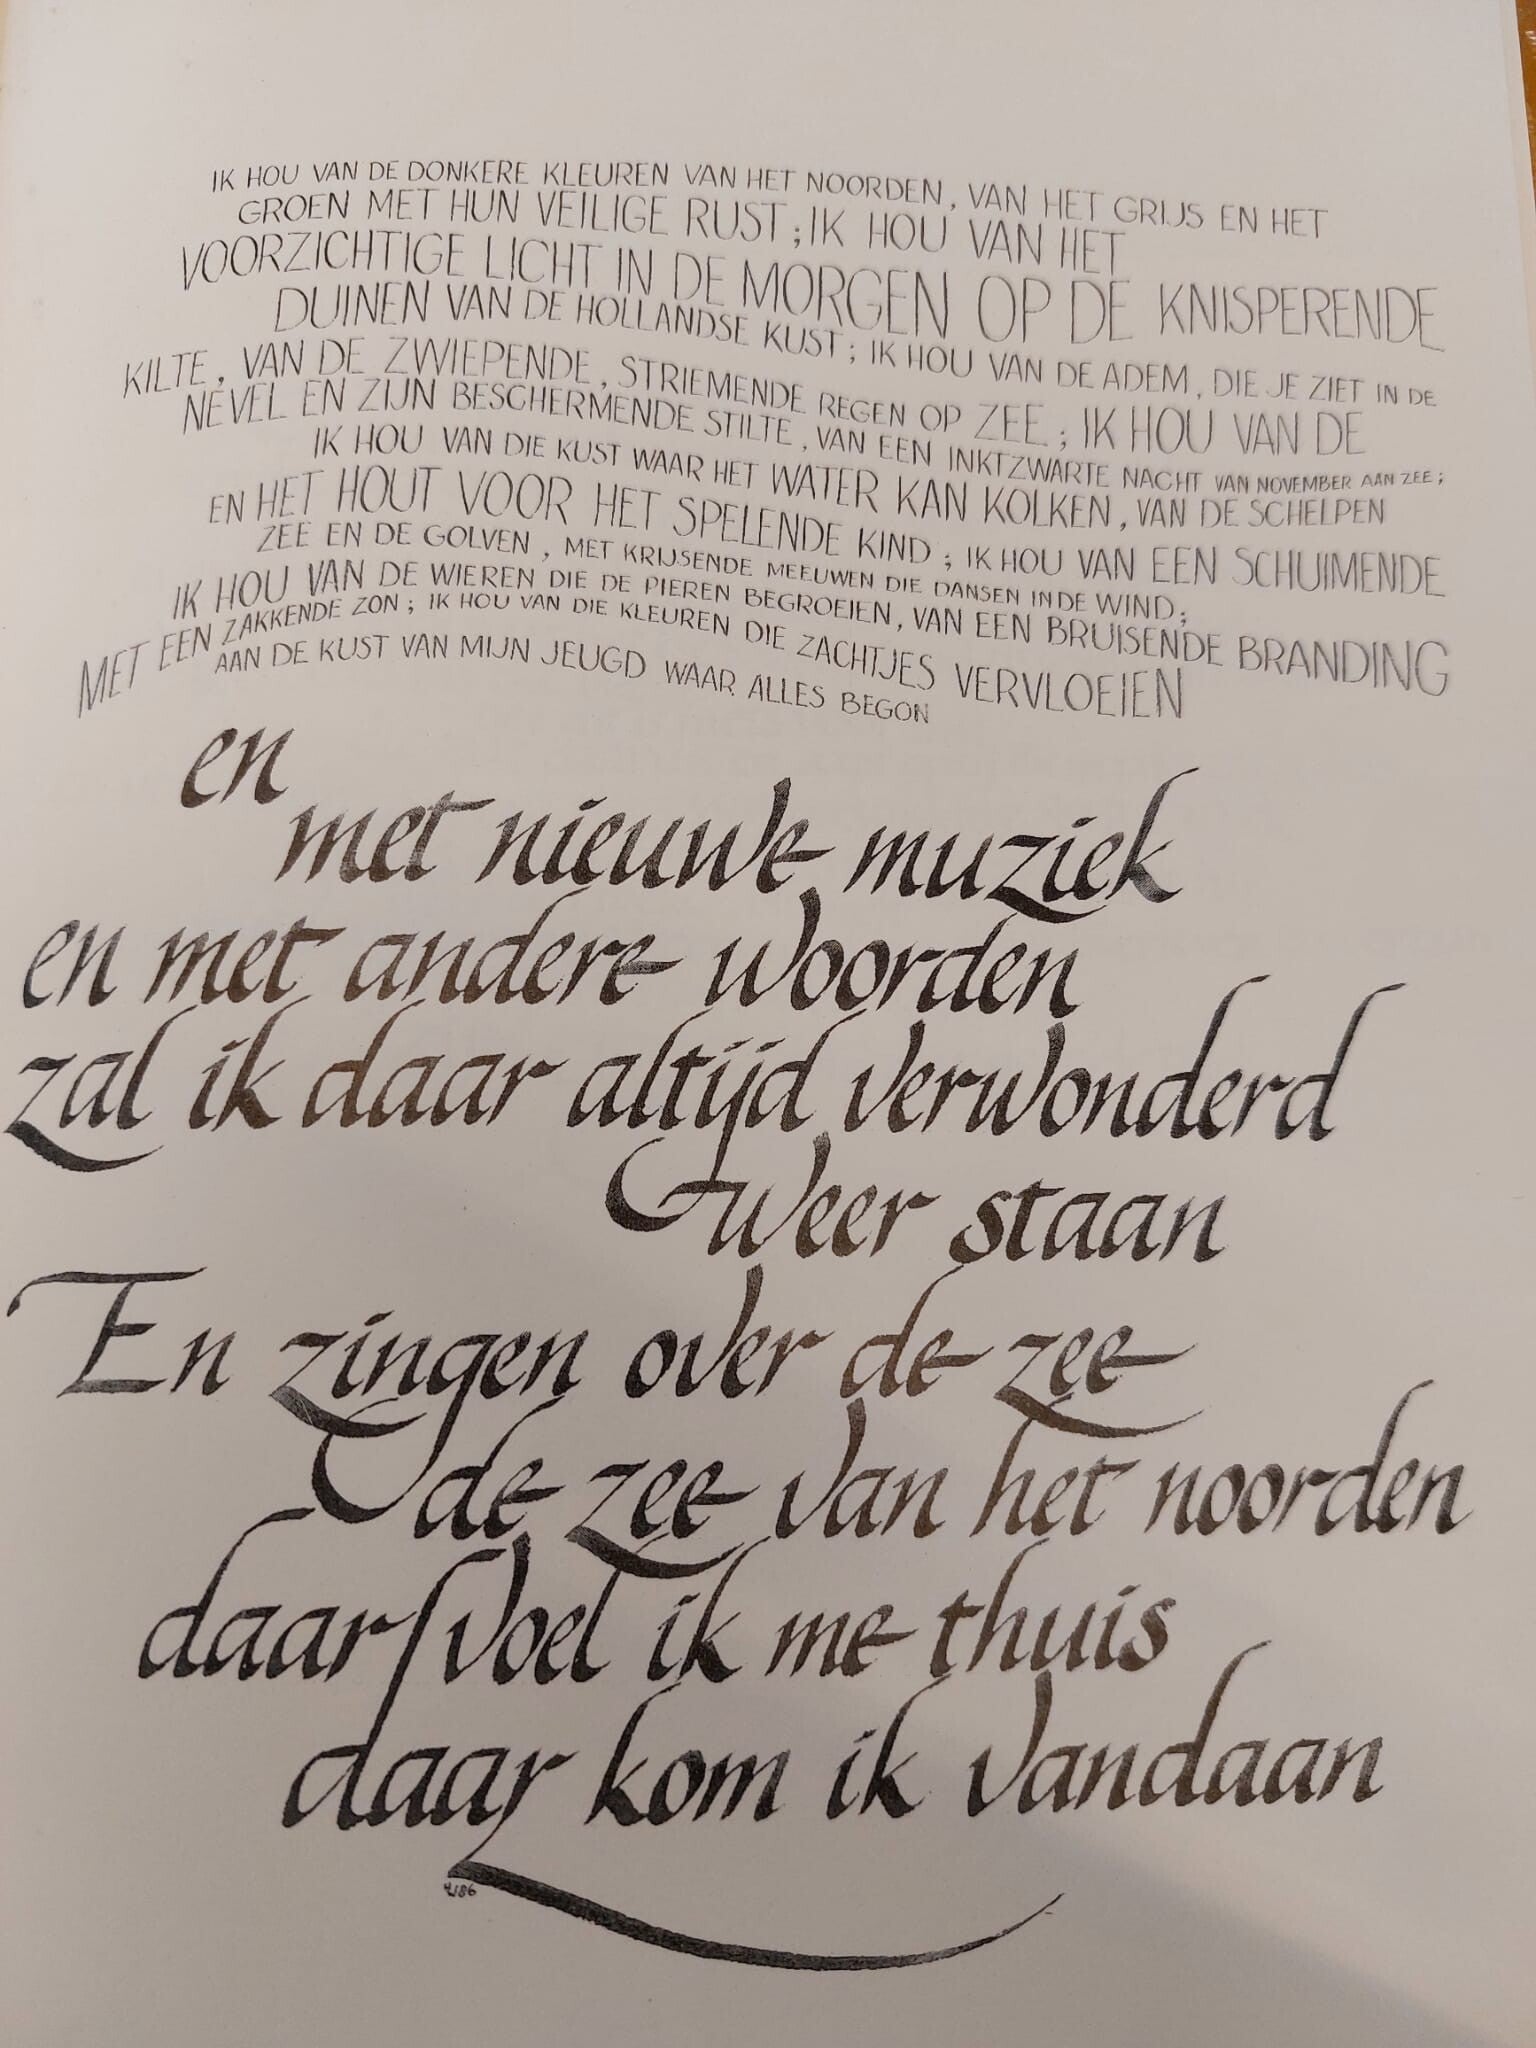 IK HOU VAN DE DONKERE KLEUREN VAN HET NOORDEN, VAN HET GRIJS EN HET
GROEN MET HUN VEILIGE RUST; IK HOU VAN HET
VOORZICHTIGE LICHT IN DE MORGEN OP DE KNISPERENDE
DUINEN VAN DE HOLLANDSE KUST; IK HOU VAN DE ADEM, DIE JE ZIET IN DE
KILTE, VAN DE ZWIEPENDE, STRIEMENDE REGEN OP ZEE; IK HOU VAN DE
NEVEL EN ZIJN BESCHERMENDE STILTE, VAN EEN INKTZWARTE NACHT VAN NOVEMBER AAN ZEE;
IK HOU VAN DIE KUST WAAR HET WATER KAN KOLKEN, VAN DE SCHELPEN
EN HET HOUT VOOR HET SPELENDE KIND; IK HOU VAN EEN SCHUIMENDE
ZEE EN DE GOLVEN, MET KRIJSENDE MEEUWEN DIE DANSEN IN DE WIND;
IK HOU VAN DE WIEREN DIE DE PIEREN BEGROEIEN, VAN EEN BRUISENDE BRANDING
MET EEN ZAKKENDE ZON; IK HOU VAN DIE KLEUREN DIE ZACHTJES VERVLOEIEN
AAN DE KUST VAN MIJN JEUGD WAAR ALLES BEGON
en
met nieuwe muziek
en met andere woorden
zal ik daar altijd verwonderd
weer staan
En zingen over de zee
de zee van het noorden
daar voel ik me thuis
daar kom ik vandaan